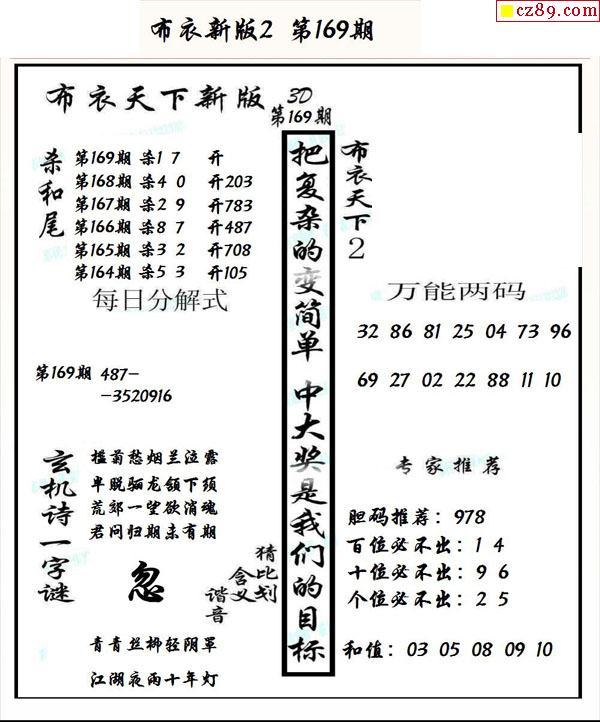 cz89.com
布衣新版2 第169期
布衣天下新版 3D
第169期
杀和尾
第169期 杀1 7 开
第168期 杀4 0 开203
第167期 杀2 9 开783
第166期 杀8 7 开487
第165期 杀3 2 开708
第164期 杀5 3 开105
每日分解式
第169期 487-
-3520916
玄机诗一字谜
槛菊愁烟兰泣露
早脱骊龙颔下须
荒郊一望欲消魂
君问归期未有期
忽
猜比划
含义
谐音
青青丝柳轻阴罩
江湖夜雨十年灯
把复杂的变简单 中大奖是我们的目标
布衣天下2
万能两码
32 86 81 25 04 73 96
69 27 02 22 88 11 10
专家推荐
胆码推荐：978
百位必不出：1 4
十位必不出：9 6
个位必不出：2 5
和值：03 05 08 09 10